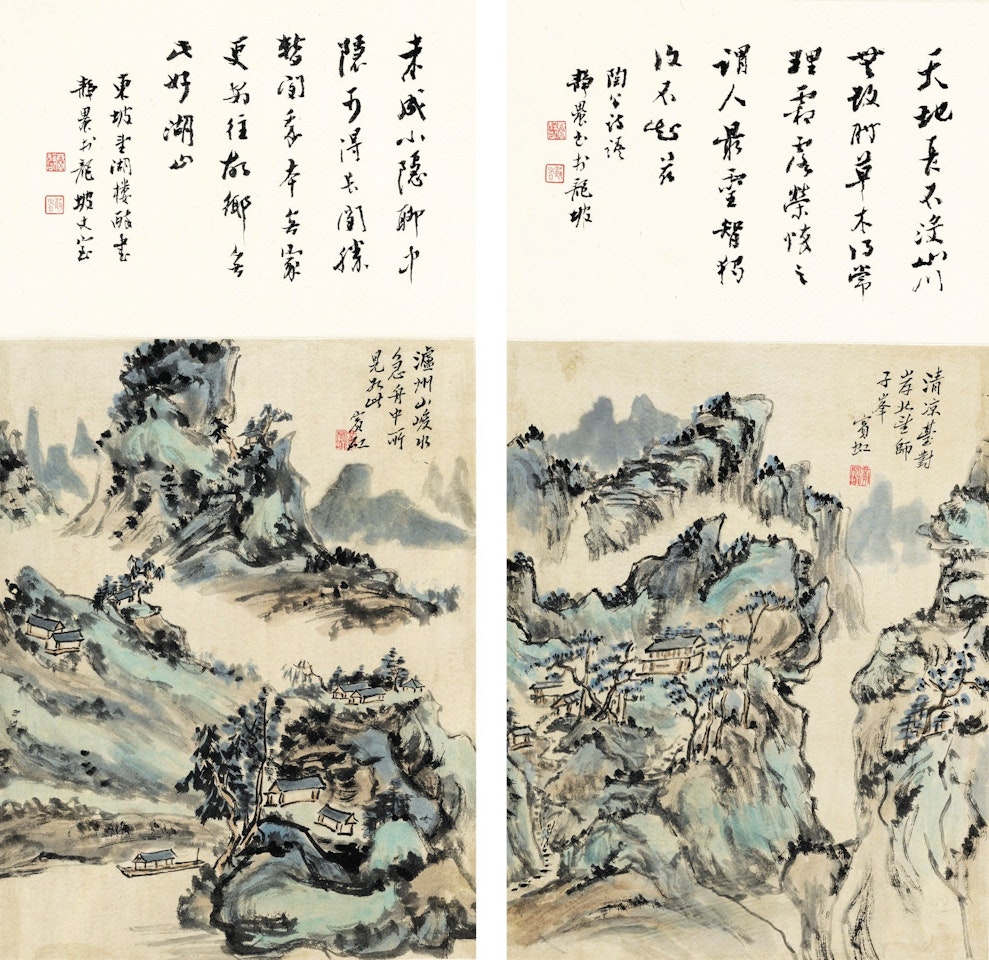 天地長不沒山川
無改時草木得常
理霜露榮悴之
謂人最靈智獨
復不如茲
陶公詩語
靜農書於龍坡
未成小隱聊中
隱可得長閒勝
暫閒我本無家
更安往故鄉無
此好湖山
東坡望湖樓醉書
靜農於龍坡丈室
清凉臺對
岸北望師
子峯
賓虹
瀘州山峻水
急舟中所
見如此
賓虹